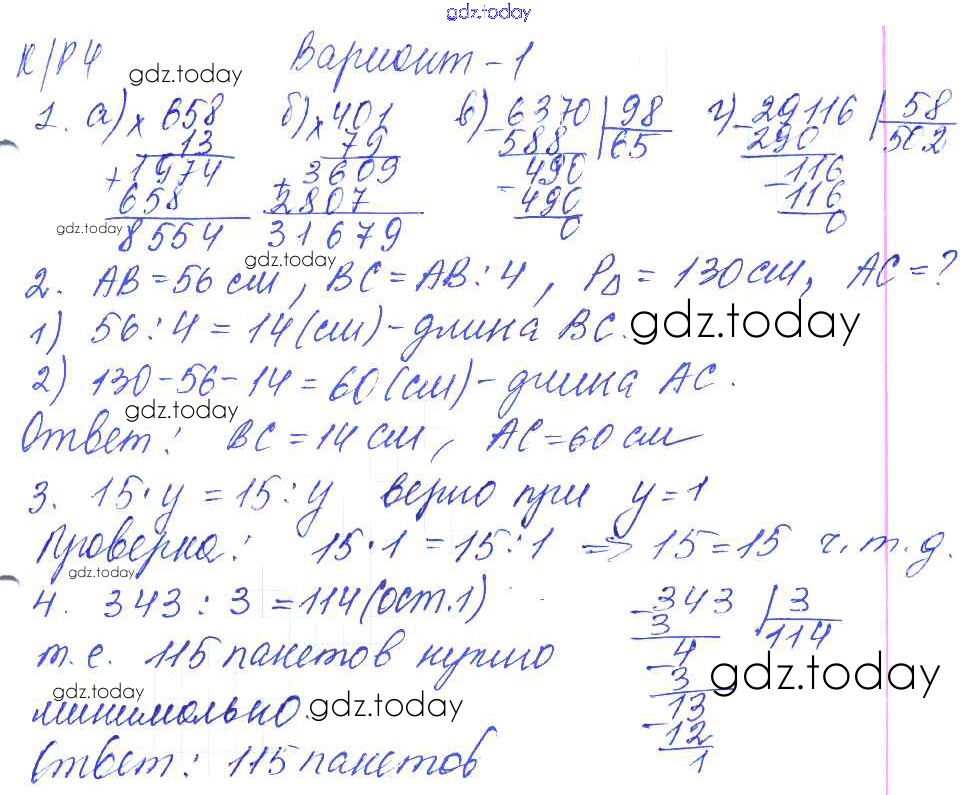 gdz.today
К/Р 4 gdz.today Вариант - 1
1. а) × 658 б) × 401 в) - 6370 | 98 г) - 29116 | 58
13 79 588 65 290 502
+ 1974 + 3609 490 - 116
658 2807 - 490 116
gdz.today 8554 31679 0 0
gdz.today
2. АВ = 56 см, ВС = АВ : 4, Р∆ = 130 см, АС = ?
1) 56 : 4 = 14 (см) - длина ВС. gdz.today
2) 130 - 56 - 14 = 60 (см) - длина АС.
gdz.today
Ответ: ВС = 14 см, АС = 60 см
3. 15 · y = 15 : y верно при y = 1
Проверка: 15 · 1 = 15 : 1 => 15 = 15 ч. т. д.
gdz.today
4. 343 : 3 = 114 (ост. 1) - 343 | 3
3 114
т. е. 115 пакетов нужно - 4
gdz.today 3 gdz.today
минимально. gdz.today 13
- 12
Ответ: 115 пакетов 1